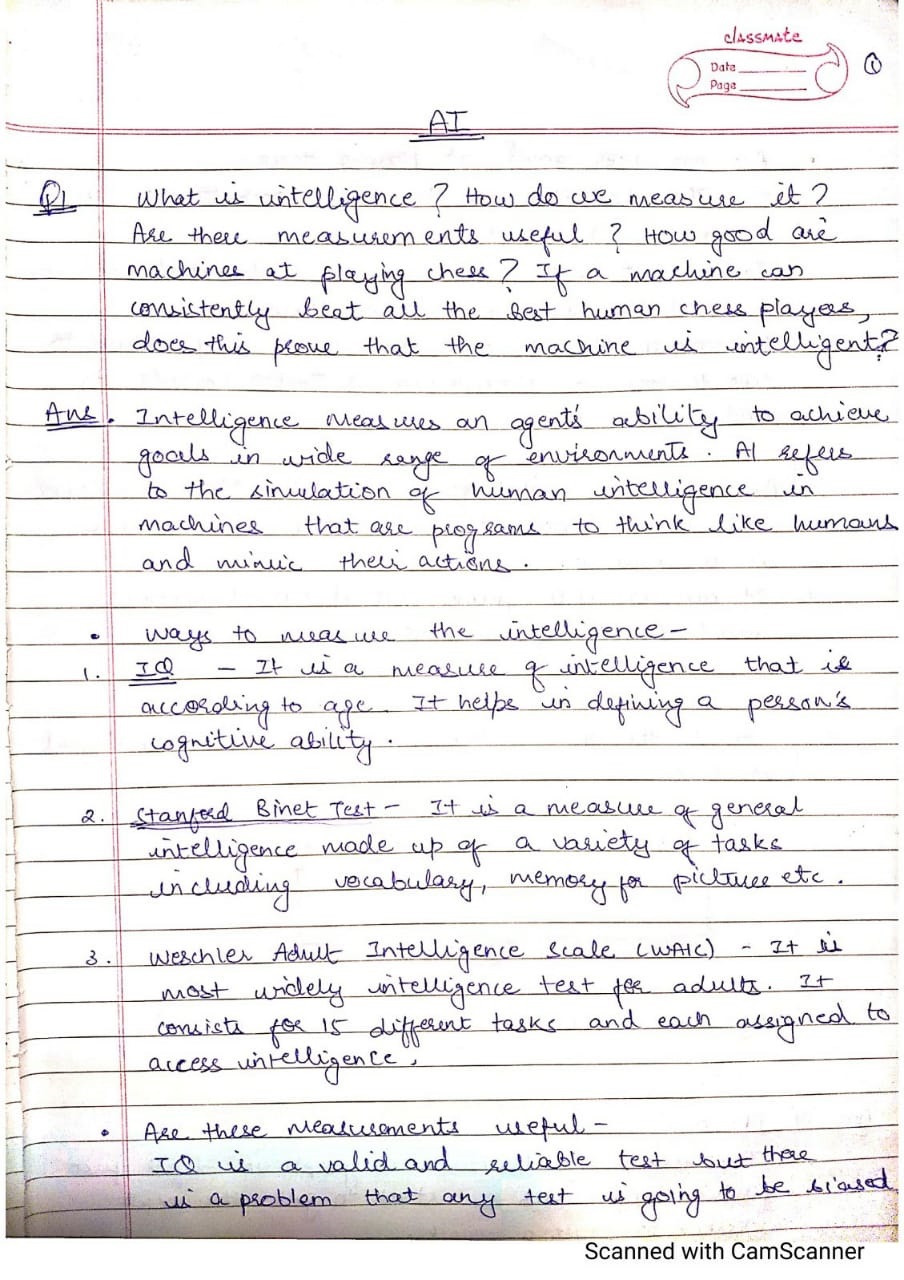 classmate
Date
Page
1
AI
Q1 What is intelligence ? How do we measure it ?
Are there measurements useful ? How good are
machines at playing chess ? If a machine can
consistently beat all the best human chess players,
does this prove that the machine is intelligent?
Ans. Intelligence measures an agent's ability to achieve
goals in wide range of environments. AI refers
to the simulation of human intelligence in
machines that are programs to think like humans
and mimic their actions.
• Ways to measure the intelligence -
1. IQ - It is a measure of intelligence that is
according to age. It helps in defining a person's
cognitive ability.
2. Stanford Binet Test - It is a measure of general
intelligence made up of a variety of tasks
including vocabulary, memory for picture etc.
3. Weschler Adult Intelligence Scale (WAIC) - It is
most widely intelligence test for adults. It
consists for 15 different tasks and each assigned to
access intelligence.
• Are these measurements useful -
IQ is a valid and reliable test but there
is a problem that any test is going to be biased
Scanned with CamScanner